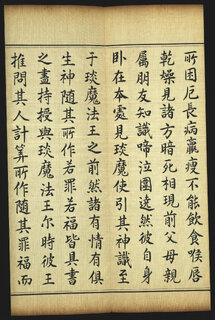 所困厄長病羸瘦不能飲食喉脣
乾燥見諸方暗死相現前父母親
屬朋友知識啼泣圍遶然彼自身
卧在本處見琰魔使引其神識至
于琰魔法王之前然諸有情有俱
生神隨其所作若罪若福皆具書
之盡持授與琰魔法王尔時彼王
推問其人計筭所作隨其罪福而